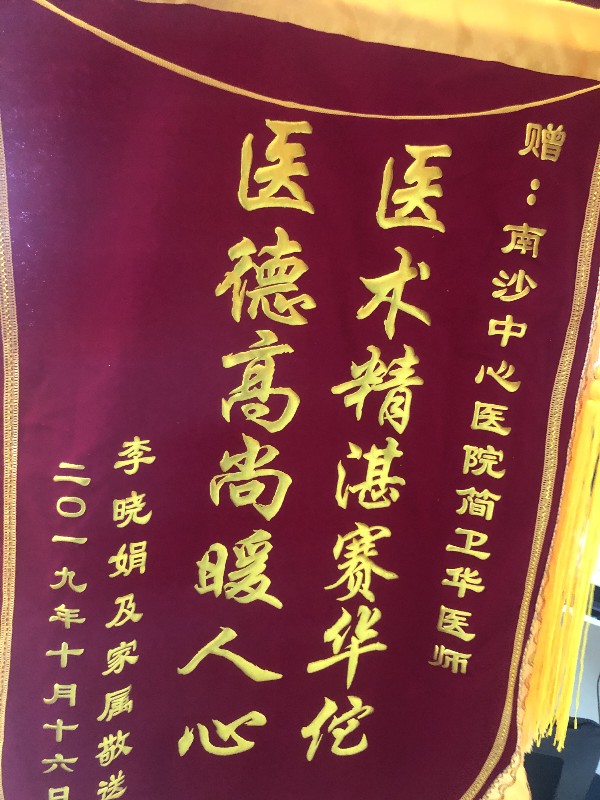 赠：南沙中心医院简卫华医师
医术精湛赛华佗
医德高尚暖人心
李晓娟及家属敬送
二〇一九年十月十六日